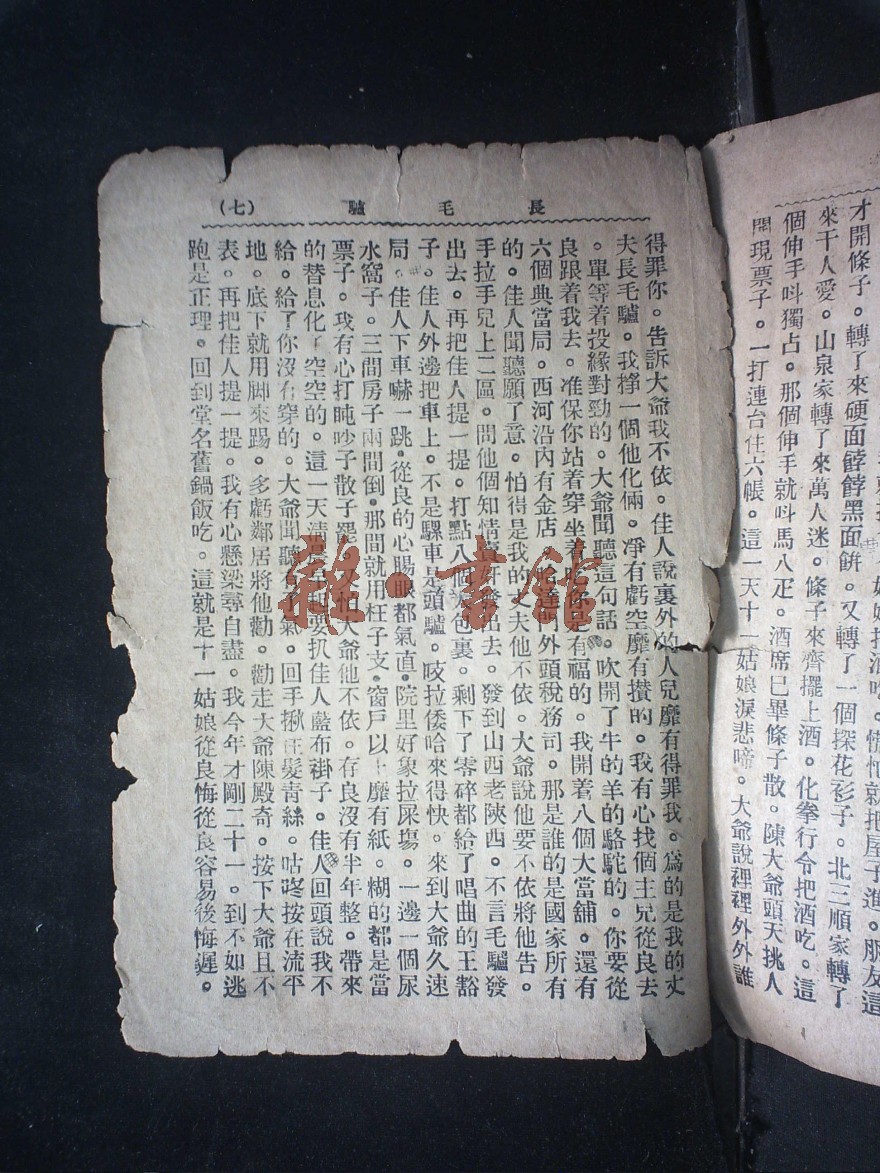 才開條子。轉了來硬面餑餑黑面餅。又轉了一個探花衫子。北三順家轉了
來干人愛。山泉家轉了來萬人迷。條子來齊擺上酒。化拳行令把酒吃。這
個伸手呌獨占。那個伸手就呌馬八疋。酒席已畢條子散。陳大爺頭天挑人
開現票子。一打連台住六帳。這一天十一姑娘淚悲啼。大爺說裡裡外外誰
長毛驢 (七)
得罪你。告訴大爺我不依。佳人說裏外的人兒靡有得罪我。爲的是我的丈
夫長毛驢。我掙一個他化倆。凈有虧空靡有攅的。我有心找個主兒從良去
。單等着投緣對勁的。大爺聞聽這句話。吹開了牛的羊的駱駝的。你要從
良跟着我去。准保你站着穿坐着你是有福的。我開着八個大當舖。還有
六個典當局。西河沿內有金店。外頭稅務司。那是誰的是國家所有
的。佳人聞聽願了意。怕得是我的丈夫他不依。大爺說他要不依將他告。
手拉手兒上二區。問他個知情出去。發到山西老陝西。不言毛驢發
出去。再把佳人提一提。打點八個包裹。剩下了零碎都給了唱曲的王豁
子。佳人外邊把車上。不是騾車是頭驢。吱拉倭哈來得快。來到大爺久速
局。佳人下車嚇一跳。從良的心腸眼都氣直。院里好象拉屎塲。一邊一個尿
水窩子。三間房子兩間倒。那間就用枉子支。窗戶以上靡有紙。糊的都是當
票子。我有心打盹吵子散子罷。又怕大爺他不依。存良沒有半年整。帶來
的替息化了空空的。這一天清晨要扒佳人藍布褂子。佳人回頭說我不
給。給了你沒有穿的。大爺聞聽氣。回手揪住髮青絲。咕咚按在流平
地。底下就用脚來踢。多虧鄰居將他勸。勸走大爺陳殿奇。按下大爺且不
表。再把佳人提一提。我有心懸梁尋自盡。我今年才剛二十一。到不如逃
跑是正理。回到堂名舊鍋飯吃。這就是十一姑娘從良悔從良容易後悔遲。
雜·書館